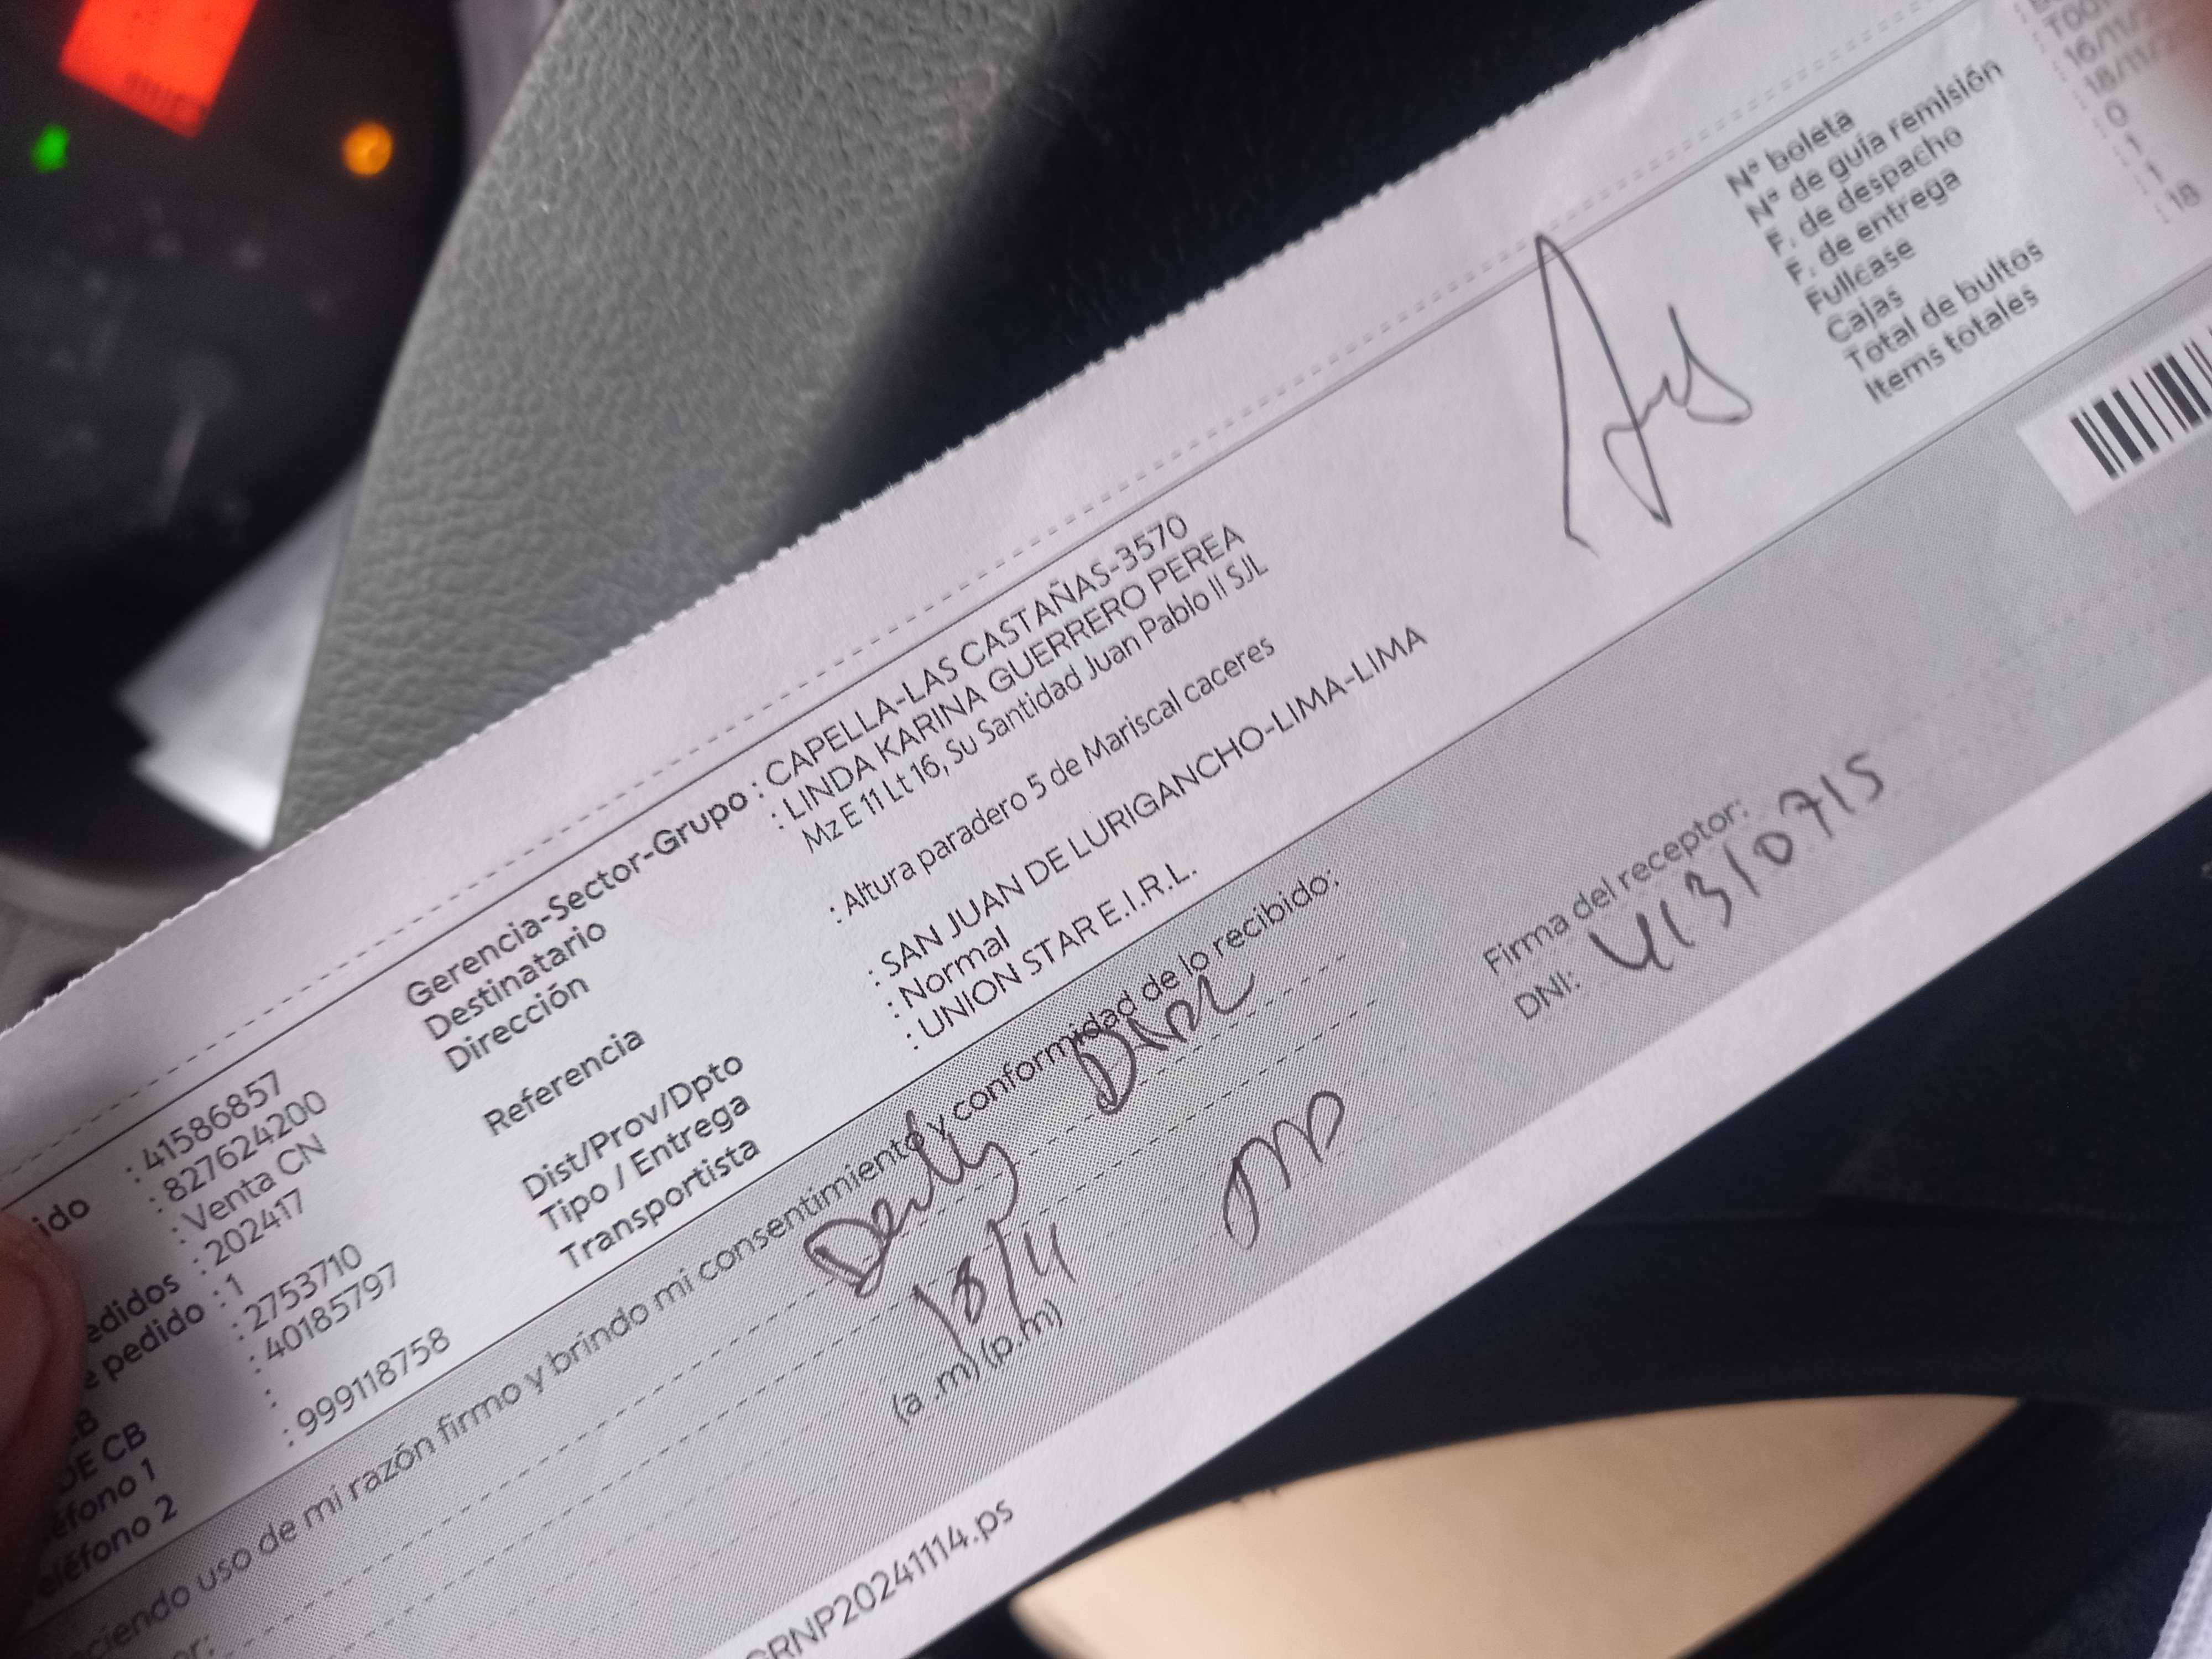 ido : 41586857
: 827624200
: Venta CN
edidos : 202417
e pedido : 1
: 2753710
DE CB : 40185797
éfono 1 :
eléfono 2 : 999118758
Gerencia-Sector-Grupo : CAPELLA-LAS CASTAÑAS-3570
Destinatario : LINDA KARINA GUERRERO PEREA
Dirección Mz E 11 Lt 16, Su Santidad Juan Pablo II SJL
Referencia : Altura paradero 5 de Mariscal caceres
Dist/Prov/Dpto : SAN JUAN DE LURIGANCHO-LIMA-LIMA
Tipo / Entrega : Normal
Transportista : UNION STAR E.I.R.L.
N° boleta
N° de guía remisión
F. de despacho 16/11/
F. de entrega 18/11/
Fullcase 0
Cajas 1
Total de bultos 1
Items totales : 18
ciendo uso de mi razón firmo y brindo mi consentimiento y conformidad de lo recibido:
or:
18/11
(a .m) (p.m)
Firma del receptor:
DNI: 41310715
GRNP20241114.ps